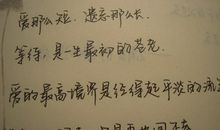 爱那么短，遗忘那么长．
等待，是一生最初的苍老．
爱的最高境界是经得起平淡的流